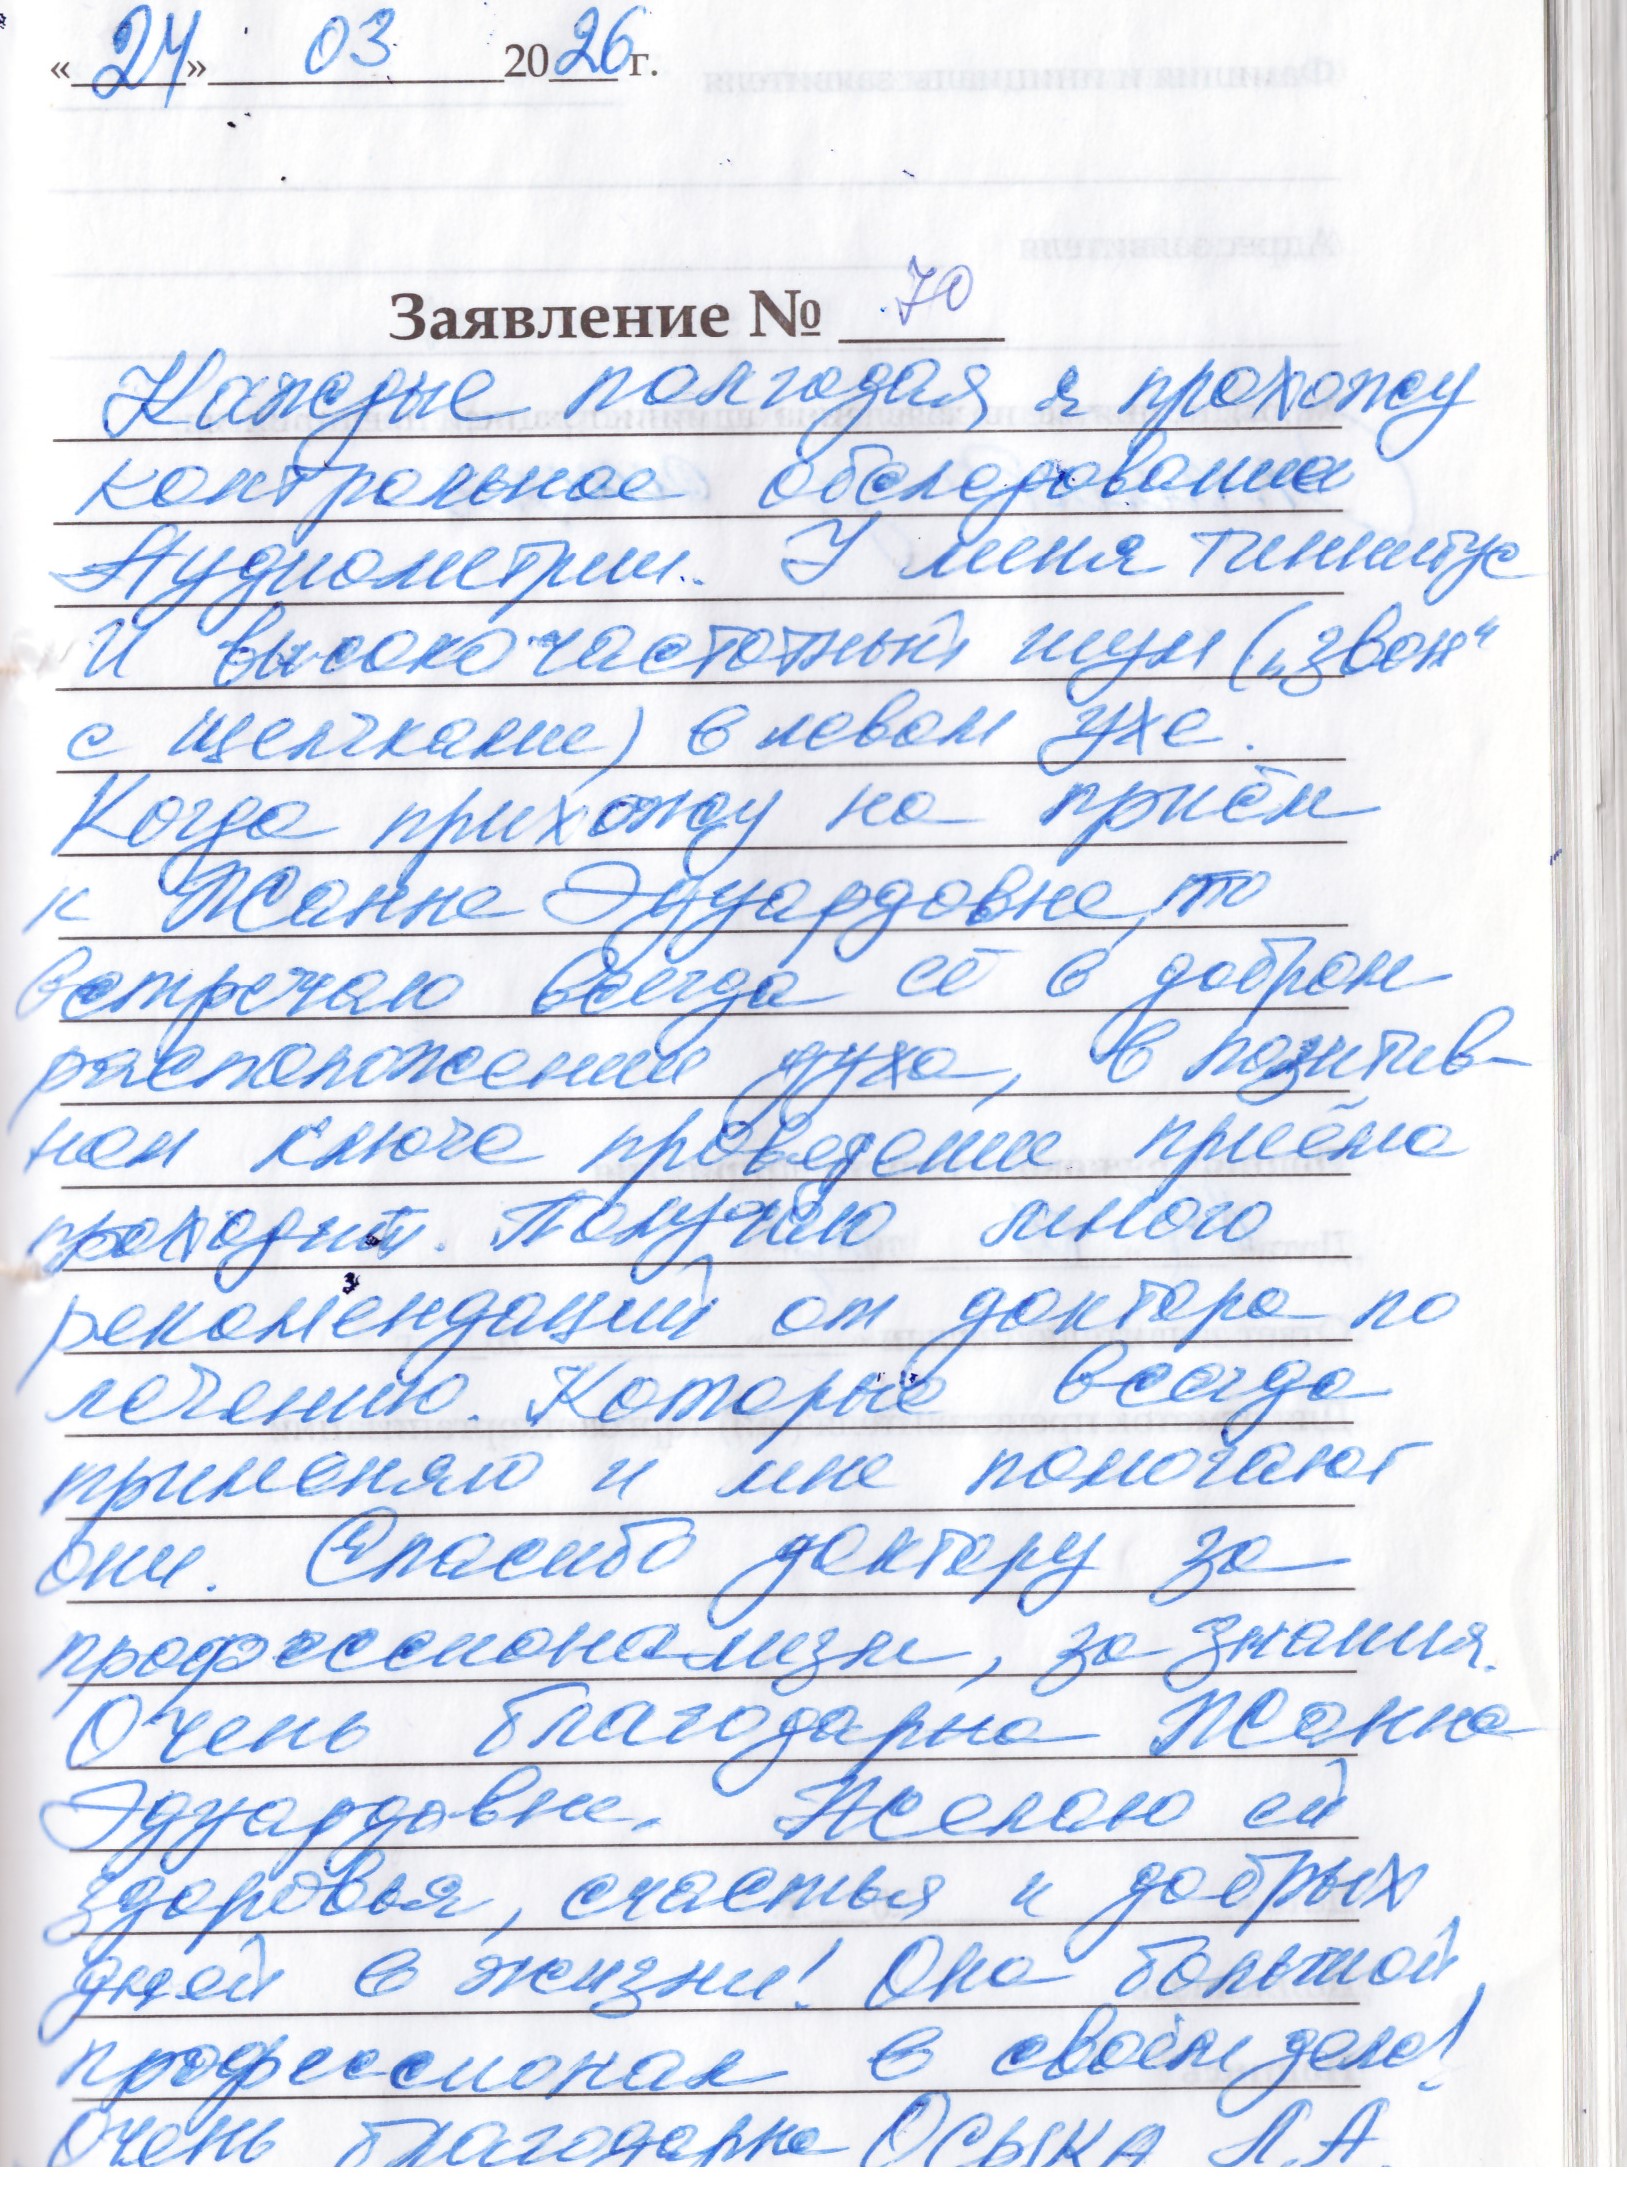 «24» 03 2026 г.
Заявление № 70
Каждые полгодая я прохожу
контрольное обследование
Аудиометрии. У меня тиннитус
и высокочастотный шум („звон"
с щелчками) в левом ухе.
Когда прихожу на приём
к Жанне Эдуардовне, то
встречаю всегда её в добром
расположении духа, в позитив-
ном ключе проведение приёма
проходит. Получаю много
рекомендаций от доктора по
лечению. Которые всегда
применяю и мне помогают
они. Спасибо доктору за
профессионализм, за знания.
Очень благодарна Жанне
Эдуардовне. Желаю ей
здоровья, счастья и добрых
дней в жизни! Она большой
профессионал в своём деле!
Очень благодарна Осыка Л.А.